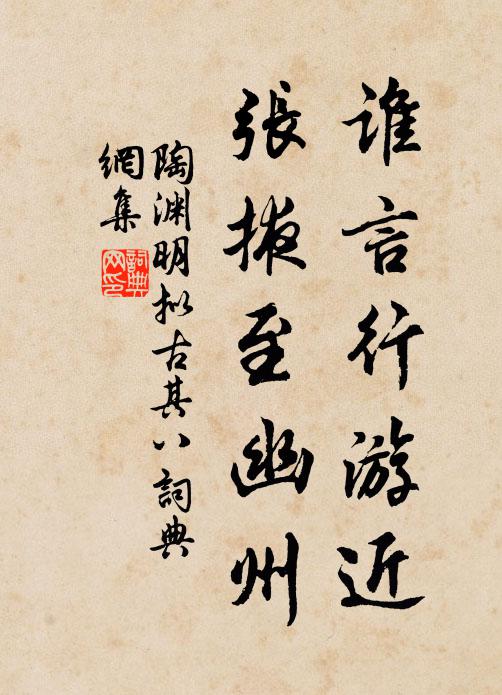 谁言行游近
張掖至幽州
陶渊明拟古其八詞典
網集
詞典
网印